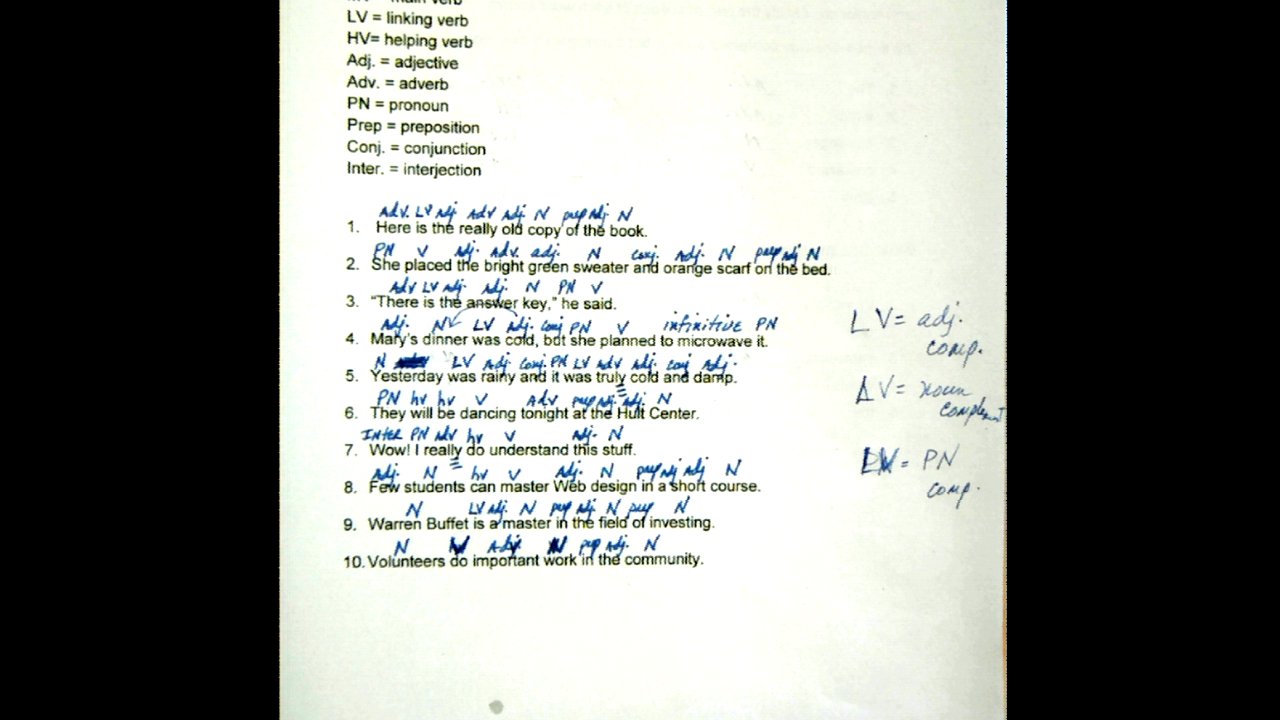 LV = linking verb
HV= helping verb
Adj. = adjective
Adv. = adverb
PN = pronoun
Prep = preposition
Conj. = conjunction
Inter. = interjection
Adv. LV Adj Adv Adj. N prep Adj. N
1. Here is the really old copy of the book.
PN V Adj. Adv. adj. N conj. Adj. N prep Adj N
2. She placed the bright green sweater and orange scarf on the bed.
Adv LV Adj Adj. N PN V
3. "There is the answer key," he said.
Adj. N LV Adj. conj PN V infinitive PN
4. Mary's dinner was cold, but she planned to microwave it.
LV= adj.
comp.
N LV Adj conj. PN LV Adv Adj. conj Adj.
5. Yesterday was rainy and it was truly cold and damp.
LV= noun
complement
PN hv hv V Adv prep Adj. Adj. N
6. They will be dancing tonight at the Hult Center.
Inter PN Adv hv V Adj. N
7. Wow! I really do understand this stuff.
LV= PN
comp.
Adj. N hv V Adj. N prep Adj Adj. N
8. Few students can master Web design in a short course.
N LV Adj. N prep Adj. N prep N
9. Warren Buffet is a master in the field of investing.
N Adj. N prep Adj. N
10. Volunteers do important work in the community.